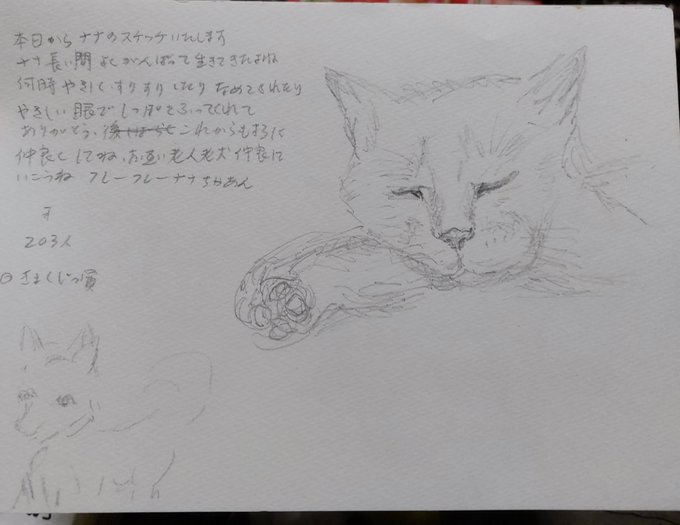 本日から ナナのスケッチいたします
ナナ 長い間 よく がんばって 生きてきたよね
何時 やさしく すりすり したり なめてくれたり
やさしい 眼で しっぽをふってくれて
ありがとう、 これからも
仲良くしてね、お互い老人老犬仲良に
いこうね フレーフレーナナちゃあん
203人